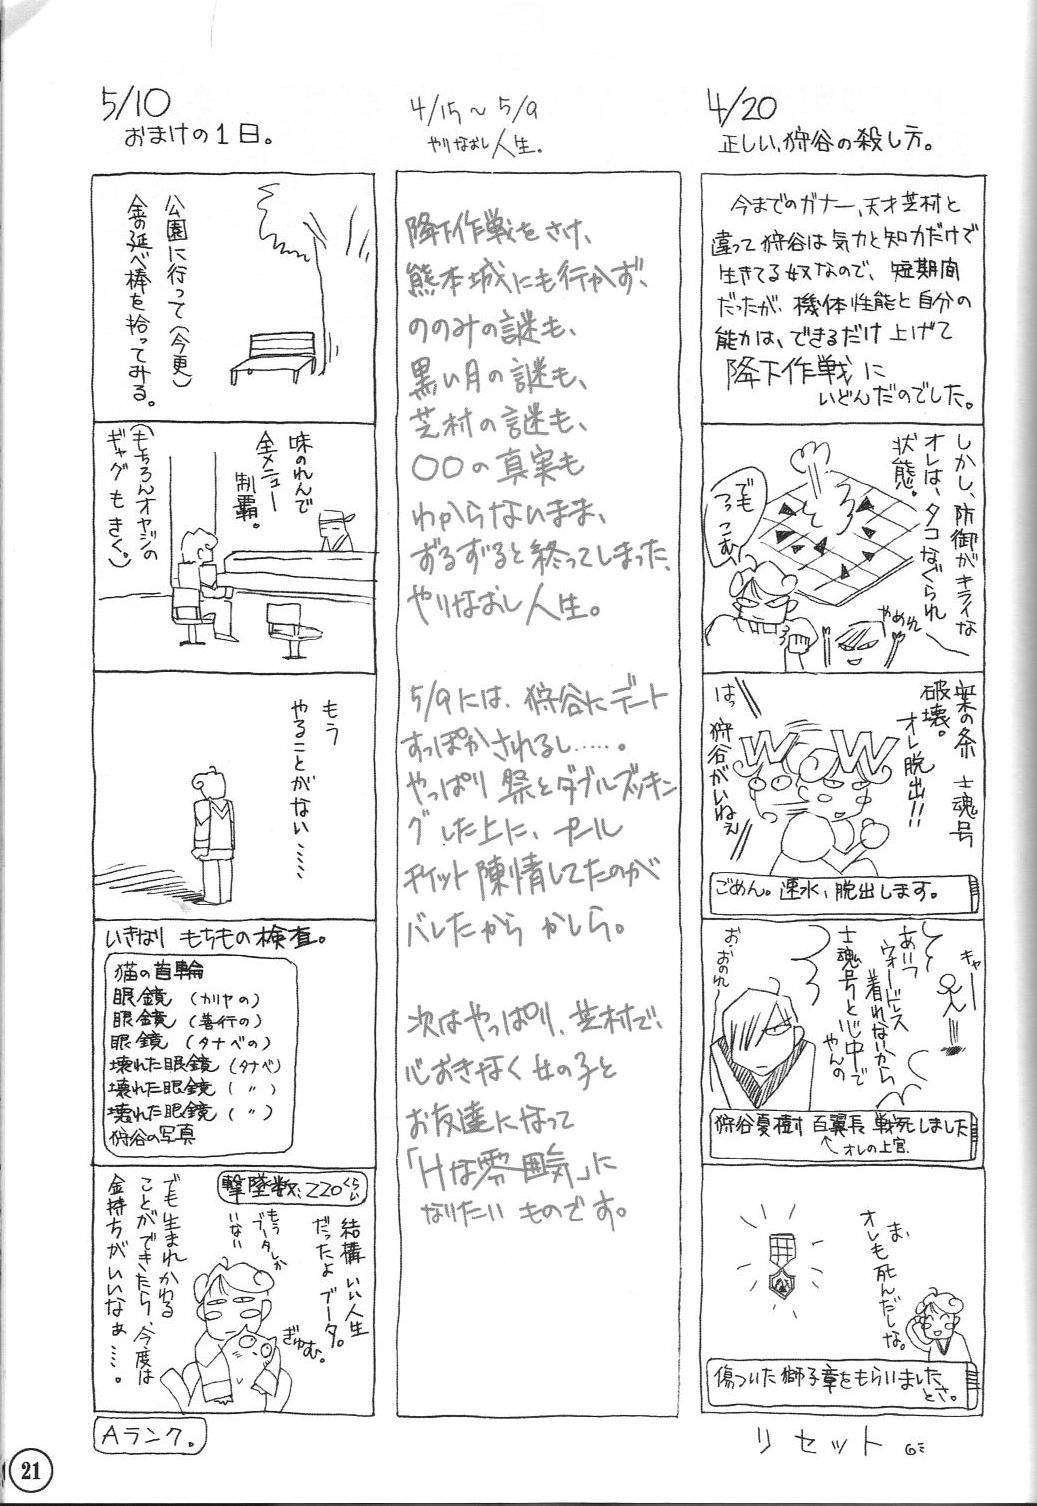 4/20
正しい、狩谷の殺し方。
今までのガナー、天才芝村と
違って狩谷は気力と知力だけで
生きてる奴なので、短期間
だったが、機体性能と自分の
能力は、できるだけ上げて
降下作戦に
いどんだのでした。
しかし、防御がキライな
オレは、タコなぐられ
状態。
でも
つっこむ
やめれ
案の条 士魂号
破壊。
オレ脱出!!
WOW
はっ
狩谷がいねぇ
ごめん。速水、脱出します。
キャー
あいつ
ウォードレス
着れないから
士魂号と心中で
やんの
お・おのれー
狩谷夏樹 百翼長 戦死しました
オレの上官.
ま、
オレも死んだしな。
傷ついた獅子章をもらいました
とさ。
リセット
4/15~5/9
やりなおし人生.
降下作戦をさけ、
熊本城にも行かず、
ののみの謎も、
黒い月の謎も、
芝村の謎も、
〇〇の真実も
わからないまま、
ずるずると終ってしまった、
やりなおし人生。
5/9には、狩谷にデート
すっぽかされるし……。
やっぱり 祭とダブルブッキン
グした上に、プール
チケット陳情してたのが
バレたから かしら。
次はやっぱり、芝村で、
心おきなく女の子と
お友達になって
「Hな雰囲気」に
なりたい ものです。
5/10
おまけの1日。
公園に行って(今更)
金の延べ棒を拾ってみる。
味のれんで
全メニュー
制覇。
(もちろんオヤジの
ギャグもきく。)
もう
やることがない……
いきなり もちもの検査。
猫の首輪
眼鏡 (カリヤの)
眼鏡 (善行の)
眼鏡 (タナベの)
壊れた眼鏡 (タナベ)
壊れた眼鏡 ( 〃 )
壊れた眼鏡 ( 〃 )
狩谷の写真
撃墜数、220くらい
結構いい人生
だったよ ブータ。
もう
ブータしか
いない
ぎゅむ。
でも生まれかわる
ことができたら、今度は
金持ちがいいなぁ…。
Aランク。
21